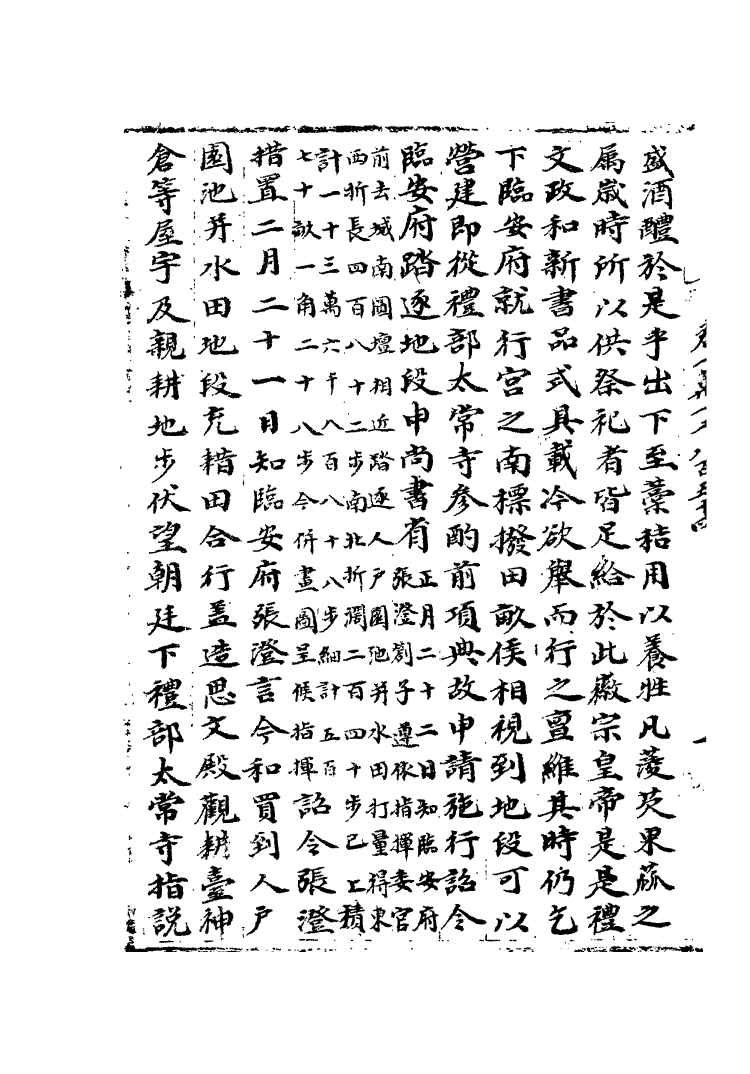 盛酒醴於是乎出下至藁秸用以養牲凡蔆芡果蓏之
屬歲時所以供祭祀者皆足給於此徽宗皇帝是是禮
文政和新書品式具載今欲舉而行之亶維其時仍乞
下臨安府就行宮之南標撥田畝俟相視到地段可以
營建即從禮部太常寺參酌前項典故申請施行詔令
臨安府踏逐地段申尚書省正月二十二日知臨安府
張澄劄子遵依指揮委官
前去城南圓壇相近踏逐人戶園池并水田打量得東
西折長四百八十二步南北折濶二百四十步已上積
計一十三萬六千八百八十八步細計五百
七十畝一角二十八步今併畫圖呈候指揮詔令張澄
措置二月二十一日知臨安府張澄言今和買到人戶
園池并水田地段充耤田合行盖造思文殿觀耕臺神
倉等屋宇及親耕地步伏望朝廷下禮部太常寺指説